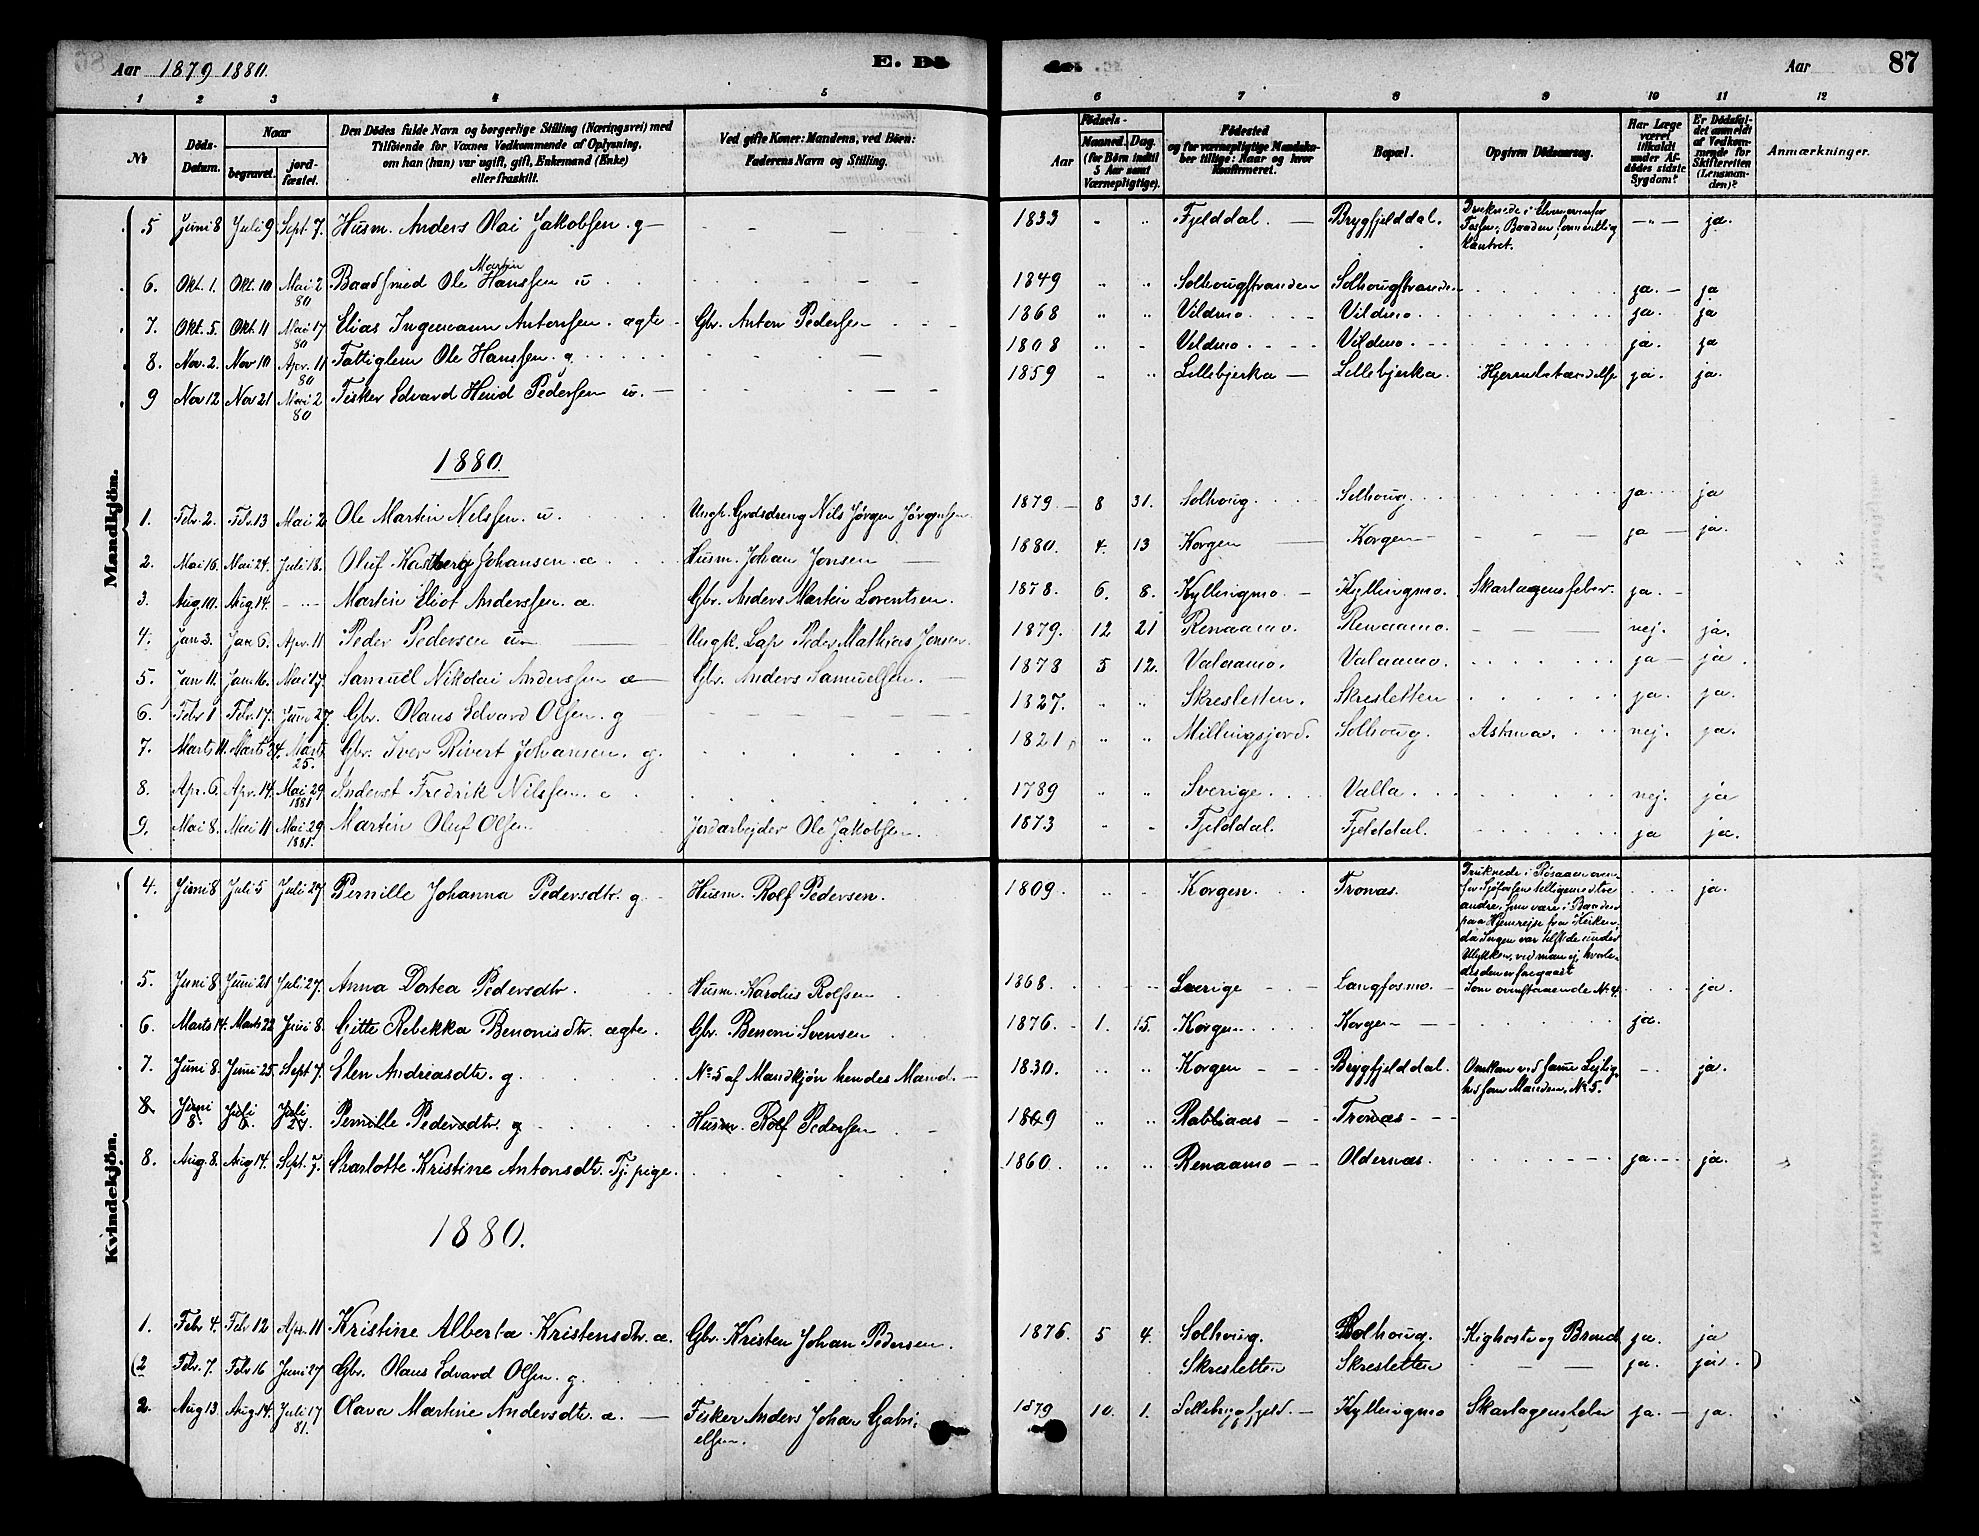 Aar 1879 1880.
E. Dö
Aar
87
1 2 3 4 5 6 7 8 9 10 11 12
No
Döds-Datum.
Naar
begravet.
jord-fæstet.
Den Dödes fulde Navn og borgerlige Stilling (Næringsvei) med
Tilföiende for Voxnes Vedkommende af Oplysning,
om han (hun) var ugift, gift, Enkemand (Enke)
eller fraskilt.
Ved gifte Koner: Mandens, ved Börn:
Faderens Navn og Stilling.
Aar
Födsels-
Maaned. Dag.
(for Börn indtil
5 Aar samt
Værnepligtige).
Födested
og for værnepligtige Mandska-
ber tillige: Naar og hvor
Konfirmeret.
Bopæl.
Opgiven Dödsaarsag.
Har Læge
været
tilkaldt
under Af-
dödes sidste
Sygdom?
Er Dödsfal-
det anmeldt
af Vedkom-
mende for
Skifteretten
(Lensman-
den)?
Anmærkninger.
Mandkjön.
5 Juni 8 Juli 9 Sept. 7. Husm. Anders Olai Jakobsen. g 1833 Fjelddal. Brygfjelddal. ja.
6. Okt. 1. Okt. 10 Mai 2 80 Baadsmed Ole Martin Hanssen u 1849 Solhougstranden Solhougstranden ja. ja
7. Okt. 5. Okt. 11 Mai 17 80 Elias Ingemann Antonsen. ægte Gbr. Anton Pedersen 1868 Vildmo. Vildmo. ja. ja
8. Nov. 2. Nov 10 Apr. 11 80 Fattiglem Ole Hanssen. g 1808 Vildmo. Vildmo. ja. ja
9 Nov 12 Nov 21 Mai 2 80 Fisker Edvard Heid Pedersen u. 1859 Lillebjerka Lillebjerka. ja. ja.
1880.
1. Febr. 2. Febr. 13 Mai 2 Ole Martin Nilssen. u. Ungk. Grdsdreng Nils Jørgen Jørgensen 1879 8 31. Solhoug. Solhoug. ja ja
2. Mai 16. Mai 24. Juli 18. Oluf Johansen. æ Husm. Johan Jonsen 1880. 4. 13 Korgen Korgen ja ja.
3. Aug 10. Aug 14. Martin Eliot Anderssen. æ. Gbr. Anders Martin Lorentsen. 1878. 6. 8. Kyllingmo. Kyllingmo. Skarlagensfeber. ja.
4. Jan 3. Jan 6. Apr. 11 Peder Pedersen u Ungk. Lap Peder Mathias Jonsen. 1879. 12 21 Renaamo. Renaamo. nej. ja.
5. Jan 11. Jan 16. Mai 17. Samuel Nikolai Anderssen æ Gbr. Anders Samuelsen. 1878 5 12. Valaamo. Valaamo. ja ja.
6. Febr 1 Febr. 17. Juni 27. Gbr. Olaus Edvard Olsen. g 1827. Skresletten. Skresletten ja. ja.
7. Marts 11. Marts 24. Marts 25. Gbr. Iver Rivert Johansen. g. 1821. Millingsjord. Solhoug. Astma. nej. ja.
8. Apr. 6 Apr. 14. Mai 29 1881 Inderst Fredrik Nilssen. e 1789 Sverige. Valla. nej. ja
9. Mai 8. Mai 11 Mai 29 1881. Martin Oluf Olsen Jordarbejder Ole Jakobsen. 1873 Fjelddal. Fjelddal. ja ja.
Kvindekjön.
4. Juni 8 Juli 5 Juli 27 Pernille Johanna Pedersdtr. g Husm. Rolf Pedersen. 1809. Korgen. Tronæs. ja.
5. Juni 8 Juni 21 Juli 27. Anna Dortea Pedersdtr. Husm. Karolius Rolfsen 1868. Sverige Langfosmo. Som ovenstaaende No 4. ja.
6. Marts 14. Marts 22 Juni 8. Gitte Rebekka Benonisdtr. ægte. Gbr. Benoni Svensen 1876. 1. 15. Korgen. Korgen ja.
7. Juni 8. Juni 25. Sept 7. Elen Andreasdtr. g. No 5 af Mandkjön hendes Mand. 1830. Korgen Brygfjelddal. Omkom ved samme Lejlig-
hed som Manden, No 5. ja.
8 Juni 8. Juli 6. Juli 27. Pernille Pedersdtr. g Husm. Rolf Pedersen 1809 Rabliaas Tronæs
8. Aug. 8. Aug 14. Sept. 7. Charlotte Kristine Antonsdtr. Tj. pige. 1860. Renaamo Oldernæs. ja. ja.
1880.
1. Febr 4. Febr 12 Apr. 11 Kristine Alberta Kristensdtr. æ. Gbr. Kristen Johan Pedersen. 1876. 5 4. Solhoug. Solhoug. Kighoste og Brand ja. ja
(2 Febr. 7. Febr 16 Juni 27 Gbr. Olaus Edvard Olsen. g. Skresletten Skresletten ja. ja.)
2. Aug 13. Aug 14. Juli 17 81. Olava Martine Andersdtr. æ. Fisker Anders Johan Gabri-
elsen. 1879 10. 1. Kyllingmo Skarlagensfeber ja. ja.